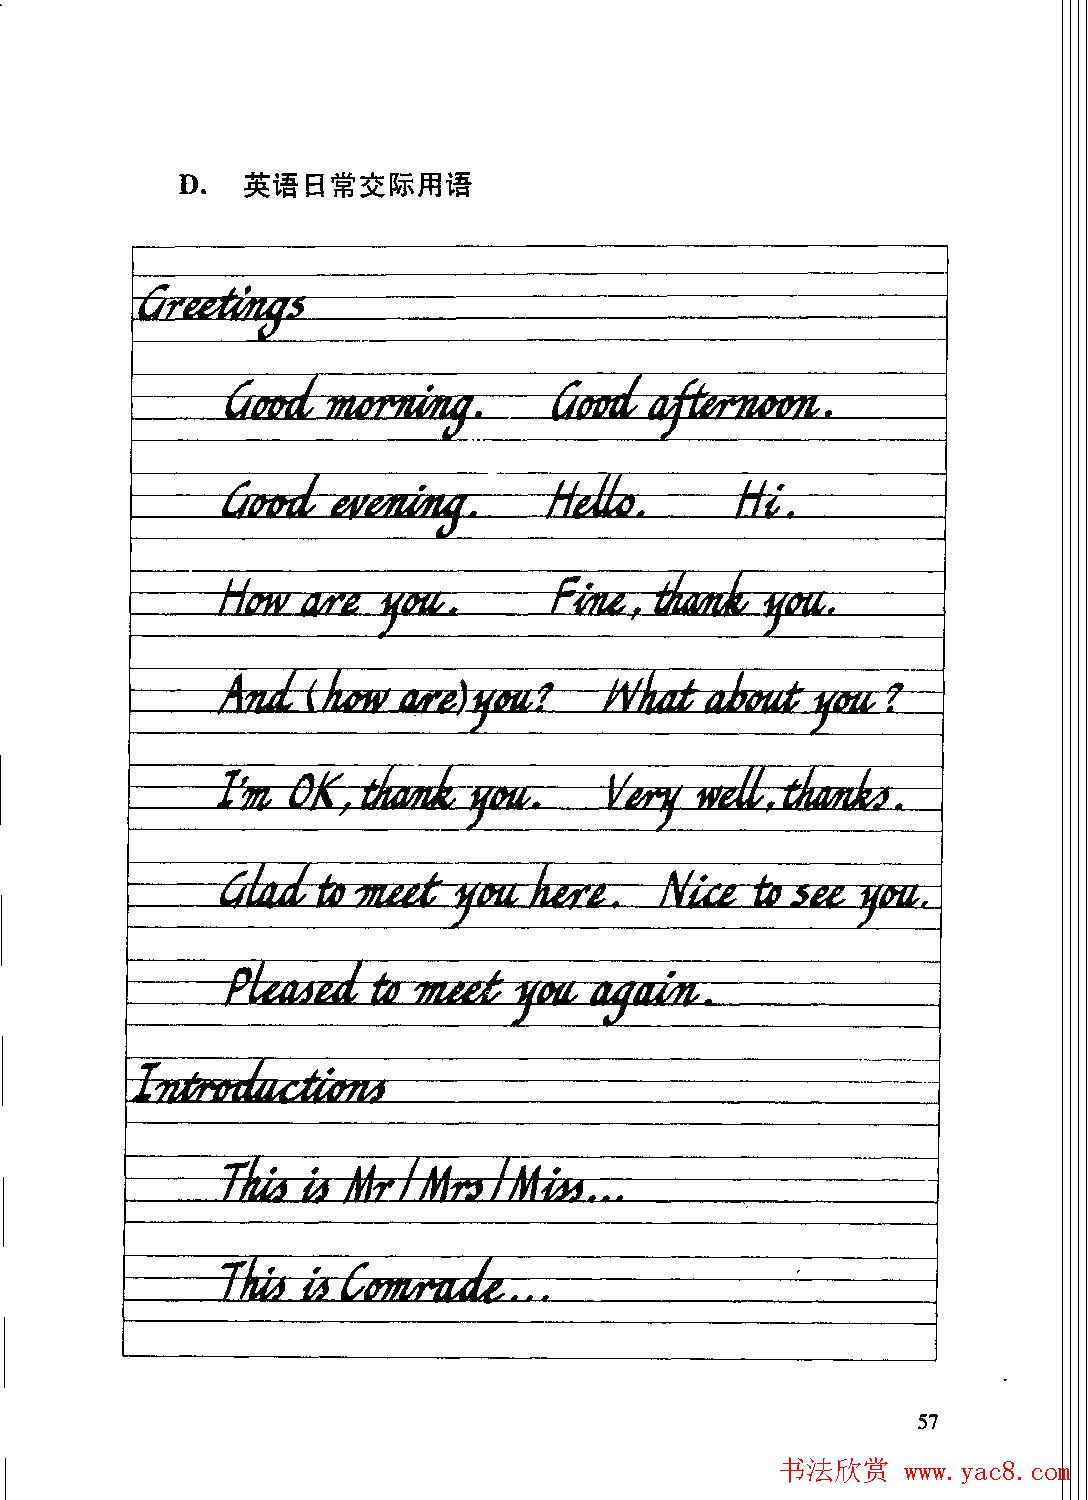 D. 英语日常交际用语
Greetings
Good morning. Good afternoon.
Good evening. Hello. Hi.
How are you. Fine, thank you.
And (how are) you? What about you?
I'm OK, thank you. Very well, thanks.
Glad to meet you here. Nice to see you.
Pleased to meet you again.
Introductions
This is Mr/Mrs/Miss...
This is Comrade...
57
书法欣赏 www.yac8.com